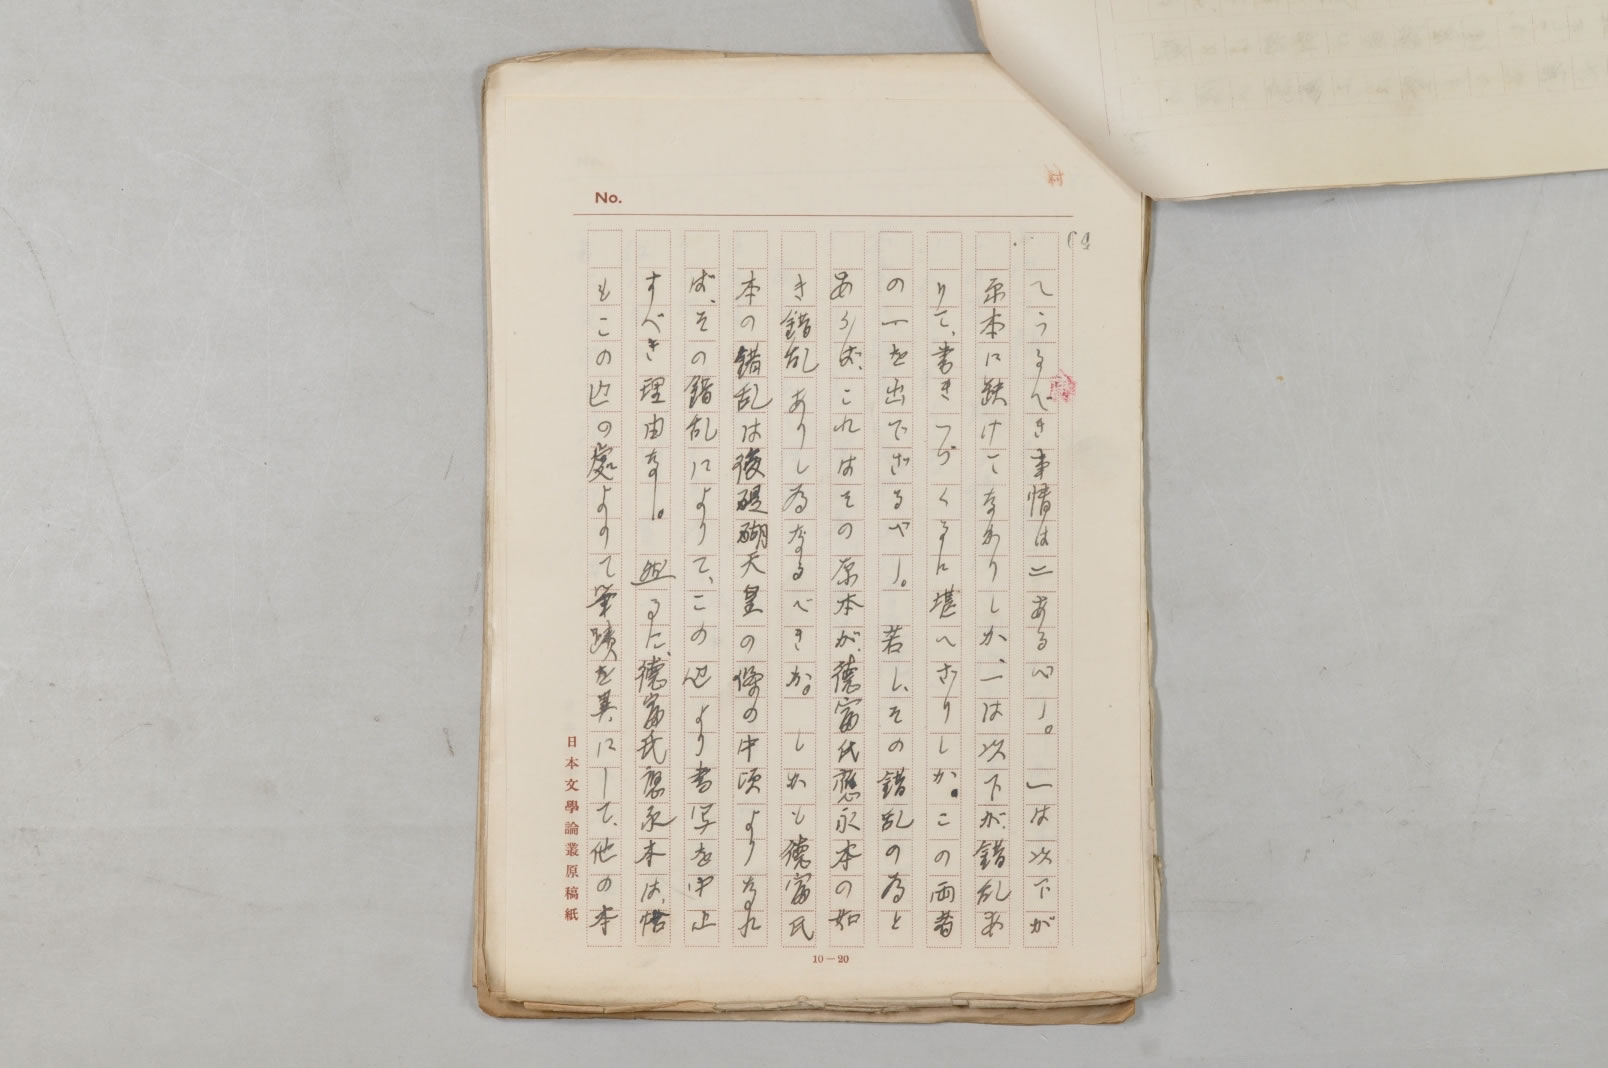 No.
村
64
てうるべき事情は二あるべし。一は以下が
原本に缺けてなかりしか、一は以下が錯乱あ
りて、書きつづくるに堪へざりしか。この両者
の一を出でざるべし。若し、その錯乱の為と
あらば、これはその原本が、德富氏應永本の如
き錯乱ありし為なるべきか。しかも德富氏
本の錯乱は後醍醐天皇の條の中頃よりなれ
ば、その錯乱によりて、この辺より書写を中止
すべき理由なし。然るに、德富氏應永本は、恰
もこの辺の處よりて筆蹟を異にして、他の本
日本文學論叢原稿紙
10—20